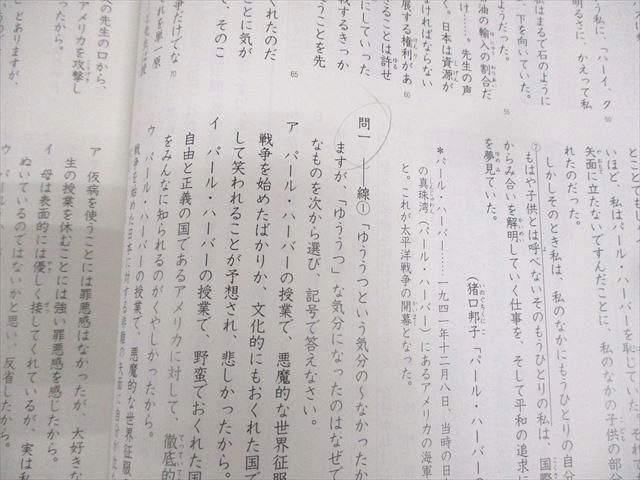 とことも
いほど、私はパール・ハーバーを恥じていた。それで
矢面に立たないですんだことに、私のなかの子供の部分
れたのだった。
しかしそのとき私は、私のなかにもうひとりの自分
⑦もはや子供とは呼べないそのもうひとりの私は、国際
からみ合いを解明していく仕事を、そして平和の追求に
を夢見ていた。
(猪口邦子「パール・ハーバー
＊パール・ハーバー……一九四一年十二月八日、当時の日
の真珠湾(パール・ハーバー)にあるアメリカの海軍
と。これが太平洋戦争の開幕となった。
問一 ――線①「ゆううつという気分の〜なかったか
ますが、「ゆううつ」な気分になったのはなぜで
なものを次から選び、記号で答えなさい。
ア パール・ハーバーの授業で、悪魔的な世界征服
戦争を始めたばかりか、文化的にもおくれた国で
して笑われることが予想され、悲しかったから。
イ パール・ハーバーの授業で、野蛮でおくれた国
自由と正義の国であるアメリカに対して、徹底的
をみんなに知られるのがくやしかったから。
ウ パール・ハーバーの授業で、悪魔的な世界征服
戦争を始めた日本に対する非難の矢面に自分が
う私に、「ハーイ、ク
明るさに、かえって私
50
私はまるで石のように
、下を向いていた。
ようだった。
55
油の輸入の割合だ
け……。先生の声
く。日本は資源が
ければならない
展する権利があ
60
ることは許せ
戦するきっか
にしていった
うことを先
65
くれたのだ
ことに気が
、そのこ
争だけでな
70
れを単一原
の先生の口から、
アメリカを攻撃し
たから。
」とありますが、
ア 仮病を使うことには罪悪感はなかったが、大好きな
生の授業を休むことには強い罪悪感を感じたから。
イ 母は表面的には優しく接してくれているが、実は私
ぬいているのではないかと思い、反省したから。